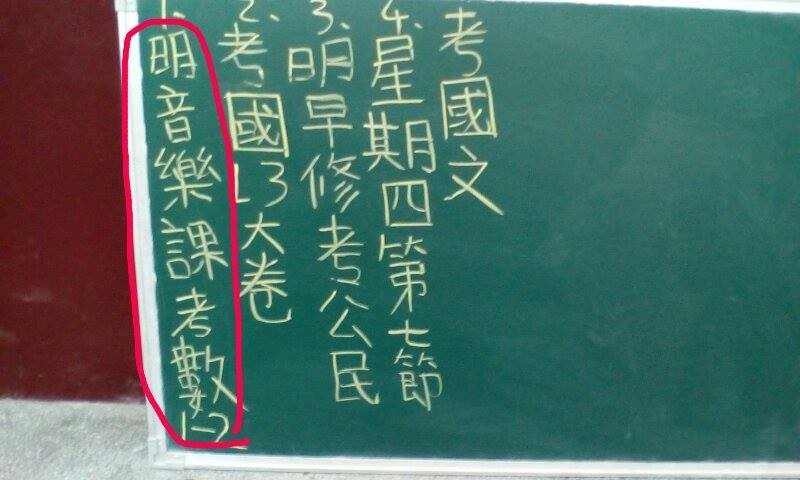 1.明音樂課考數1-2
2.考國L3大卷
3.明早修考公民
4.星期四第七節
考國文